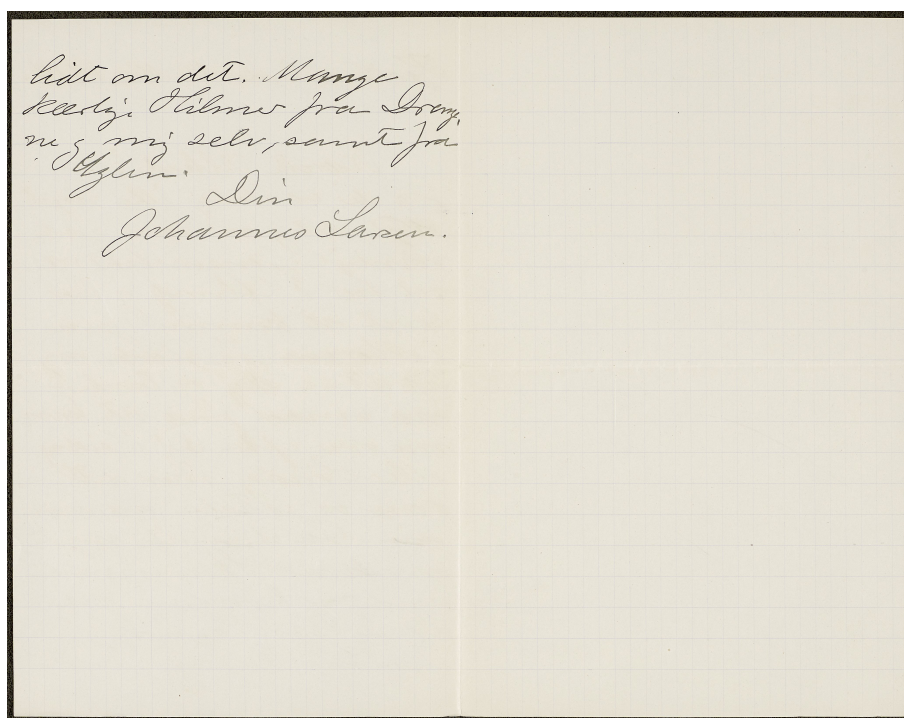 lidt om det. Mange
kærlige Hilsner fra Drenge
ne og mig selv, samt fra
Uglen.
Din
Johannes Larsen.